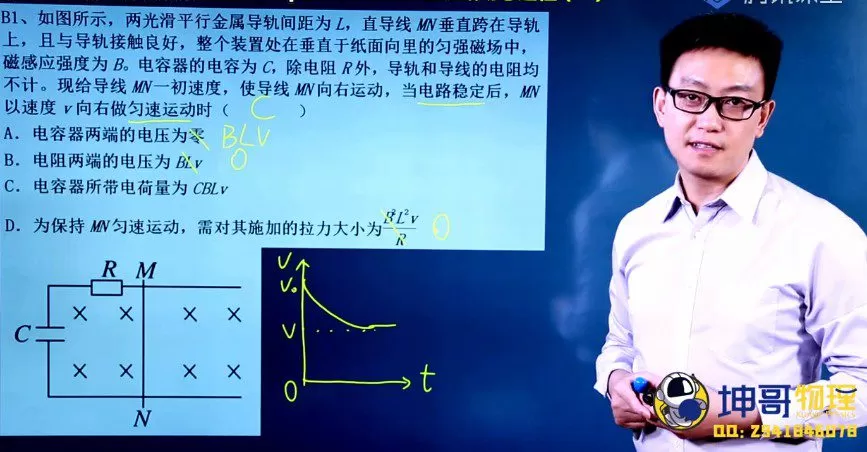 B1、如图所示，两光滑平行金属导轨间距为 L，直导线 MN 垂直跨在导轨
上，且与导轨接触良好，整个装置处在垂直于纸面向里的匀强磁场中，
磁感应强度为 B。电容器的电容为 C，除电阻 R 外，导轨和导线的电阻均
不计。现给导线 MN 一初速度，使导线 MN 向右运动，当电路稳定后，MN
以速度 v 向右做匀速运动时（ C ）
A．电容器两端的电压为零 BLV
B．电阻两端的电压为 BLv 0
C．电容器所带电荷量为 CBLv
D．为保持 MN 匀速运动，需对其施加的拉力大小为 B²L²v/R 0
R M
C
N
V
V₀
V
0
t
坤哥物理
QQ: 2541846078